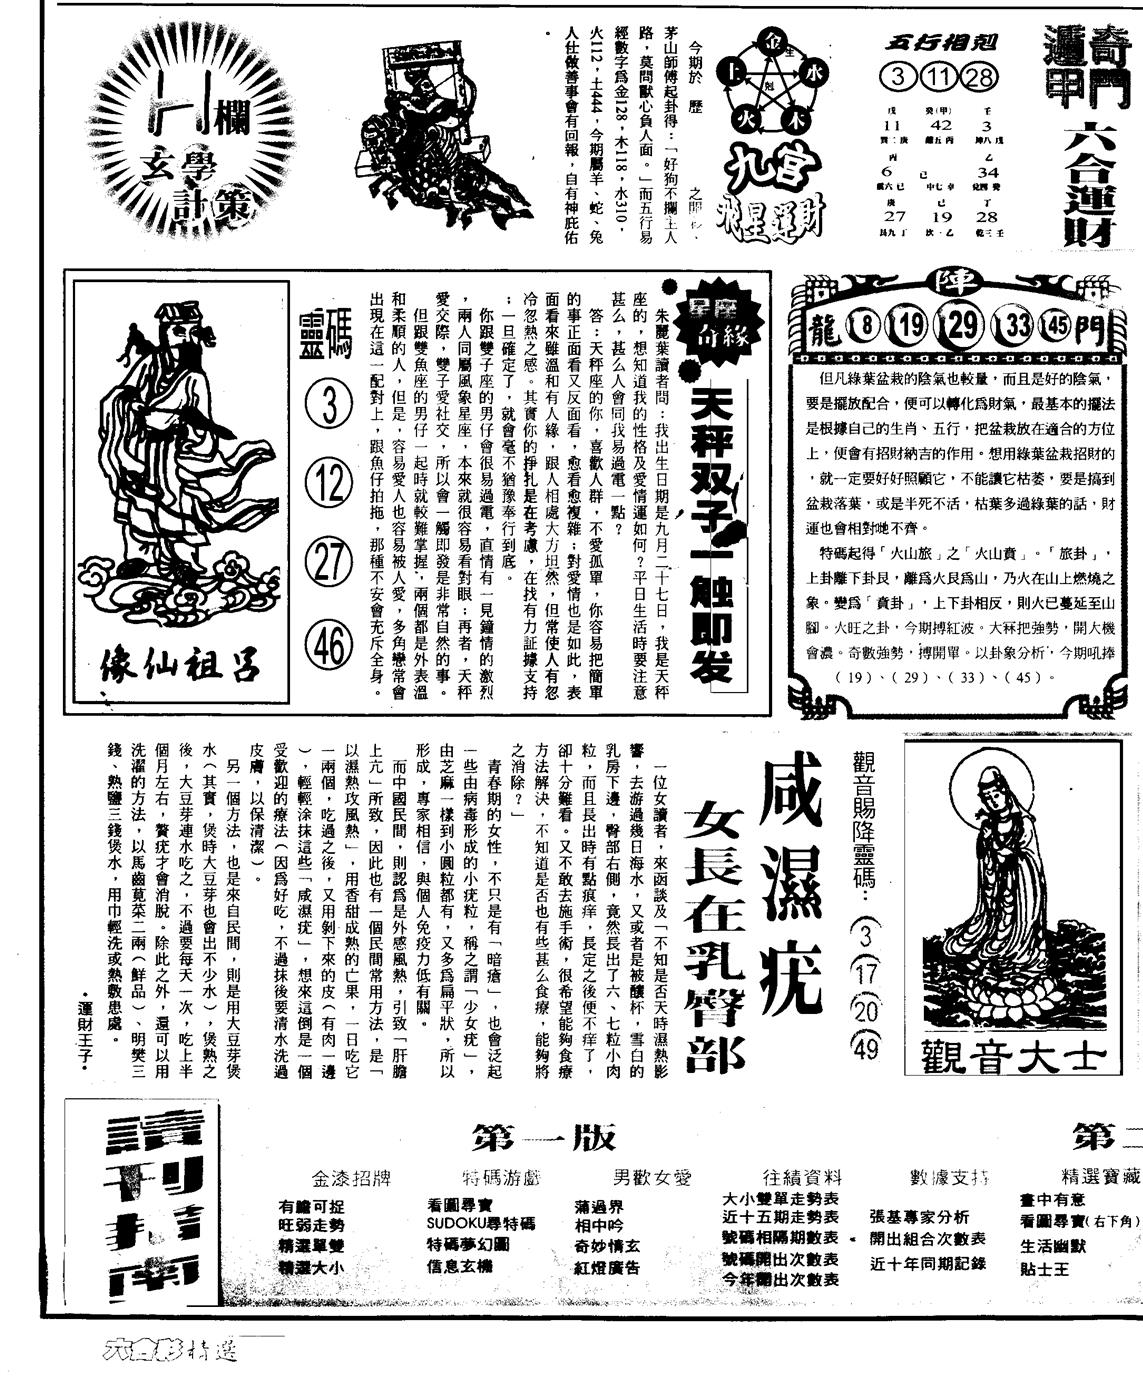 奇門
遁甲
六合運財
五行相剋
3 11 28
戊 癸(甲) 壬
11 42 3
丙 乙
6 己 34
庚 己 丁
27 19 28
金
生
水
木
火
土
剋
九宮
飛星運財
今期於 歷 之間
茅山師傅起卦得：「好狗不擺主人
路，莫問獸心負人面。」而五行易
經數字爲金128，木118，水310，
火112，土444，今期屬羊、蛇、兔
人仕做善事會有回報，自有神庇佑
。
欄
玄學
計策
陣
龍 8 19 29 33 45 門
但凡綠葉盆栽的陰氣也較量，而且是好的陰氣，
要是擺放配合，便可以轉化爲財氣，最基本的擺法
是根據自己的生肖、五行，把盆栽放在適合的方位
上，便會有招財納吉的作用。想用綠葉盆栽招財的
，就一定要好好照顧它，不能讓它枯萎，要是搞到
盆栽落葉，或是半死不活，枯葉多過綠葉的話，財
運也會相對哋不齊。
特碼起得「火山旅」之「火山賁」。「旅卦」，
上卦離下卦艮，離爲火艮爲山，乃火在山上燃燒之
象。變爲「賁卦」，上下卦相反，則火已蔓延至山
腳。火旺之卦，今期搏紅波。大冧把強勢，開大機
會濃。奇數強勢，搏開單。以卦象分析，今期吼捧
（19）、（29）、（33）、（45）。
星座
奇緣
天秤双子一触即发
朱麗葉讀者問：我出生日期是九月二十七日，我是天秤
座的，想知道我的性格及愛情運如何？平日生活時要注意
甚么，甚么人會同我易過電一點？
答：天秤座的你，喜歡人群，不愛孤單，你容易把簡單
的事正面看又反面看，愈看愈複雜；對愛情也是如此，表
面看來雖溫和有人緣，跟人相處大方坦然，但常使人有忽
冷忽熱之感。其實你的掙扎是在考慮，在找有力証據支持
；一旦確定了，就會毫不猶豫奉行到底。
你跟雙子座的男仔會很易過電，直情有一見鐘情的激烈
，兩人同屬風象星座，本來就很容易看對眼；再者，天秤
愛交際，雙子愛社交，所以會一觸即發是非常自然的事。
但跟雙魚座的男仔一起時就較難掌握，兩個都是外表溫
和柔順的人，但是，容易愛人也容易被人愛，多角戀常會
出現在這一配對上，跟魚仔拍拖，那種不安會充斥全身。
靈碼
3
12
27
46
呂祖仙像
觀音大士
觀音賜降靈碼：
3
17
20
49
咸濕疣
女長在乳臀部
一位女讀者，來函談及「不知是否天時濕熱影
響，去游過幾日海水，又或者是被釀杯，雪白的
乳房下邊，臀部右側，竟然長出了六、七粒小肉
粒，而且長出時有點痕痒，長定之後便不痒了，
卻十分難看。又不敢去施手術，很希望能夠食療
方法解決，不知道是否也有些甚么食療，能夠將
之消除？」
青春期的女性，不只是有「暗瘡」，也會泛起
一些由病毒形成的小疣粒，稱之謂「少女疣」，
由芝麻一樣到小圓粒都有，又多爲扁平狀，所以
形成，專家相信，與個人免疫力低有關。
而中國民間，則認爲是外感風熱，引致「肝膽
上亢」所致，因此也有一個民間常用方法，是「
以濕熱攻風熱」，用香甜成熟的亡果，一日吃它
一兩個，吃過之後，又用剝下來的皮（有肉一邊
），輕輕涂抹這些「咸濕疣」，想來這倒是一個
受歡迎的療法（因爲好吃，不過抹後要清水洗過
皮膚，以保清潔）。
另一個方法，也是來自民間，則是用大豆芽煲
水（其實，煲時大豆芽也會出不少水），煲熟之
後，大豆芽連水吃之，不過要每天一次，吃上半
個月左右，贅疣才會消脫。除此之外，還可以用
洗濯的方法，以馬齒莧菜二兩（鮮品）、明樊三
錢、熟鹽三錢煲水，用巾輕洗或熱敷患處。
・運財王子・
讀刊指南
第一版
金漆招牌
有膽可捉
旺弱走勢
精選單雙
精選大小
特碼游戲
看圖尋寶
SUDOKU尋特碼
特碼夢幻圖
信息玄機
男歡女愛
蒲過界
相中吟
奇妙情玄
紅燈廣告
往績資料
大小雙單走勢表
近十五期走勢表
號碼相隔期數表
號碼開出次數表
今年開出次數表
數據支持
張基專家分析
開出組合次數表
近十年同期記錄
第二
精選寶藏
畫中有意
看圖尋寶(右下角)
生活幽默
貼士王
六合彩精選